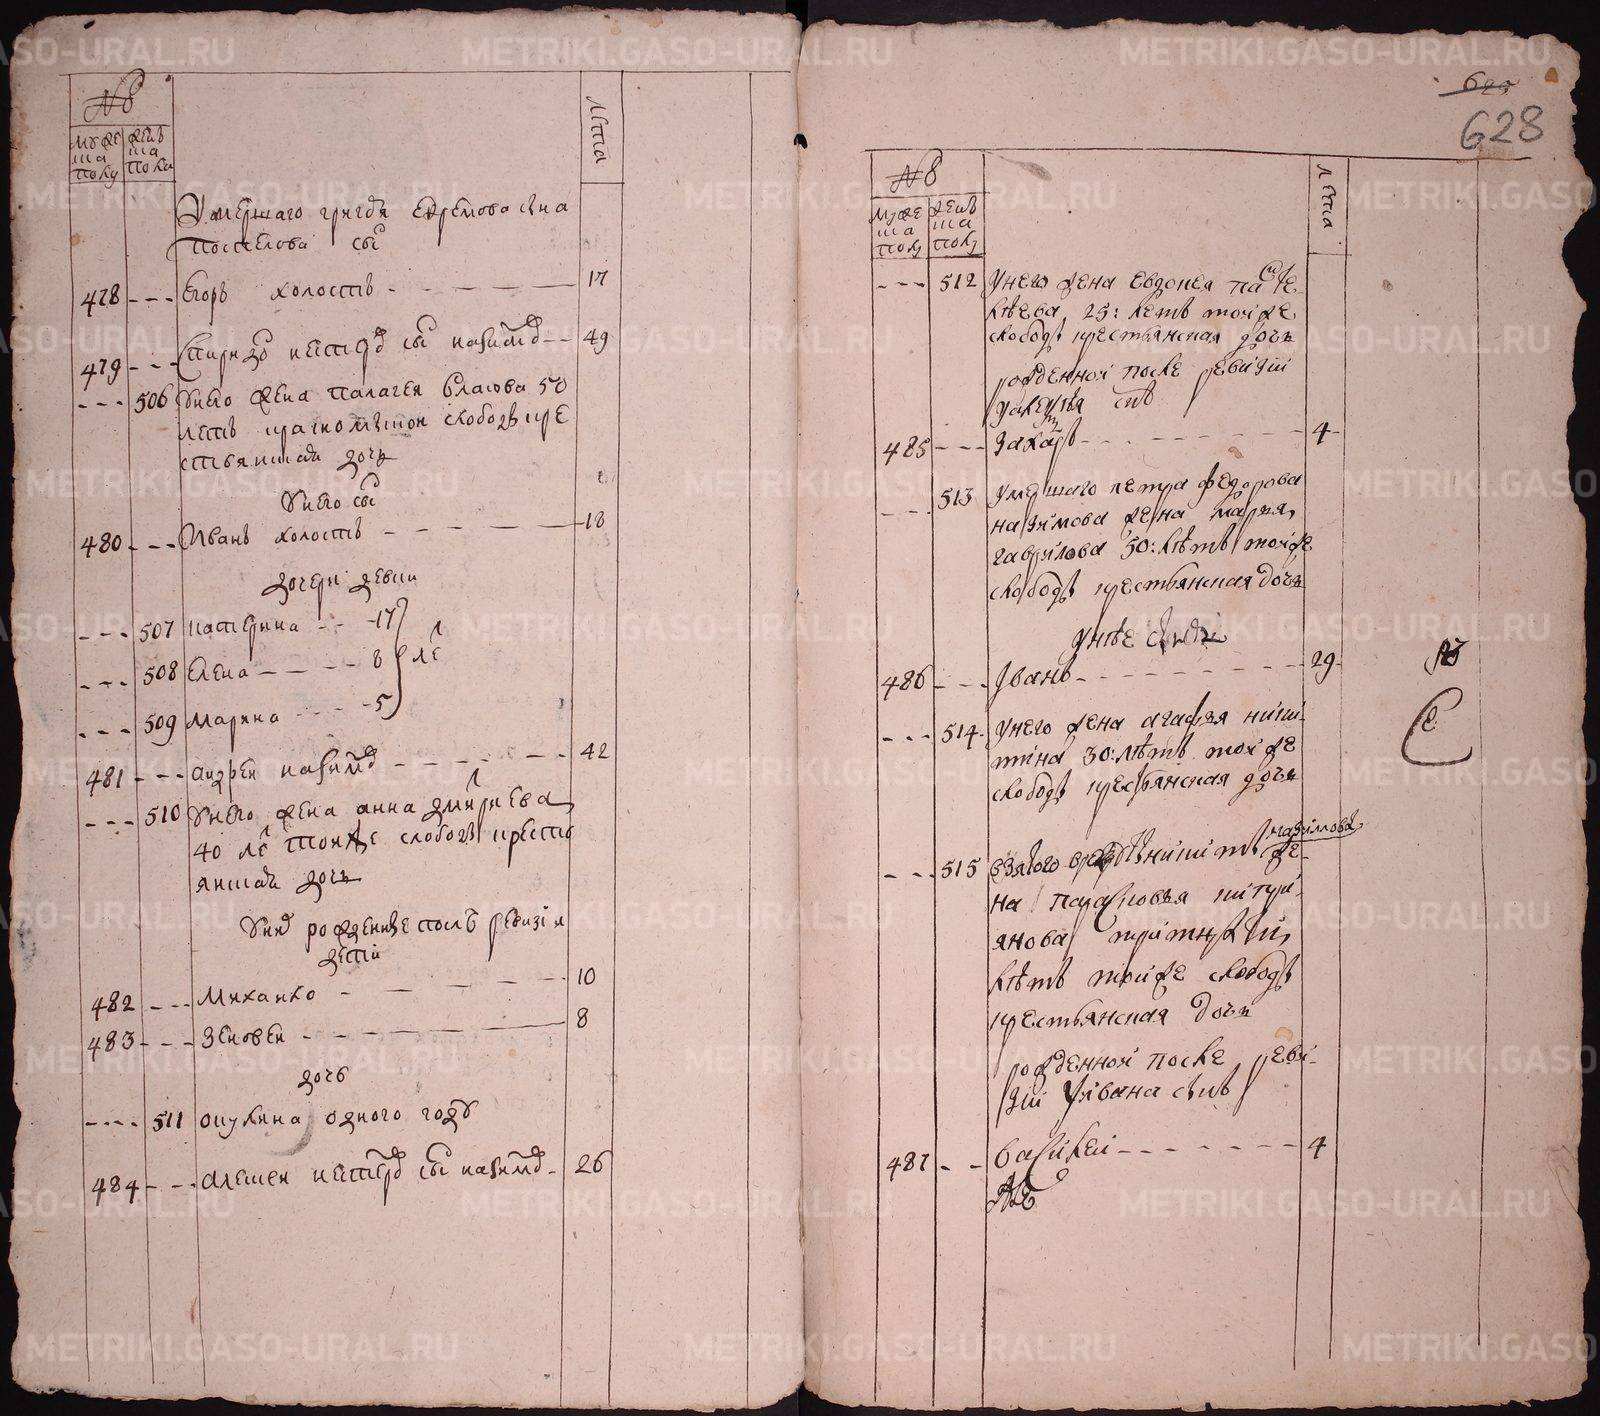 №
муже
ска
полу
женъ
ска
полу
лѣта
Умершаго григоя ефремова сына
поспелова сы
478 --- Егоръ холостъ 17
479 --- Спиридо нестеро сы назимо 49
--- 506 У него жена палагея власова 50
летъ краснослобоцкой слободы кре
стьянская дочь
У него сы
480 --- Иванъ холостъ 18
дочери девки
--- 507 катерина 17
--- 508 Елена 8 ле
--- 509 Марина 5
481 --- андреи назимо 42
--- 510 У него жена анна дмитриева
40 ле тоиже слободы кресть
янская дочь
рожденные после ревизiи
дети
482 --- Михаико 10
483 --- Зеновеи 8
дочь
--- 511 акулина одного году
484 --- алексеи нестеро сы назимо 26
625
628
№
муже
ска
полу
женъ
ска
полу
лѣта
--- 512 У него жена Евдокея
25: летъ тоиже
слободы крестьянская дочь
рожденной после ревизiи
у алексѣя сынъ
485 --- Захаръ 4
--- 513 Умершаго петра федорова
назимова жена марья
гаврилова 50: лѣтъ тоиже
слободы крестьянская дочь
у нѣе сынъ
486 --- Iванъ 29
--- 514 У него жена агафья ники
тина 30: лѣтъ тоиже
слободы крестьянская дочь
гавриллова
--- 515 взятого в рекруты никиты же
на парасковья
янова тритцати
лѣтъ тоиже слободы
крестьянская дочь
рожденной после реви
зiи у ивана сынъ
487 -- василеи 4